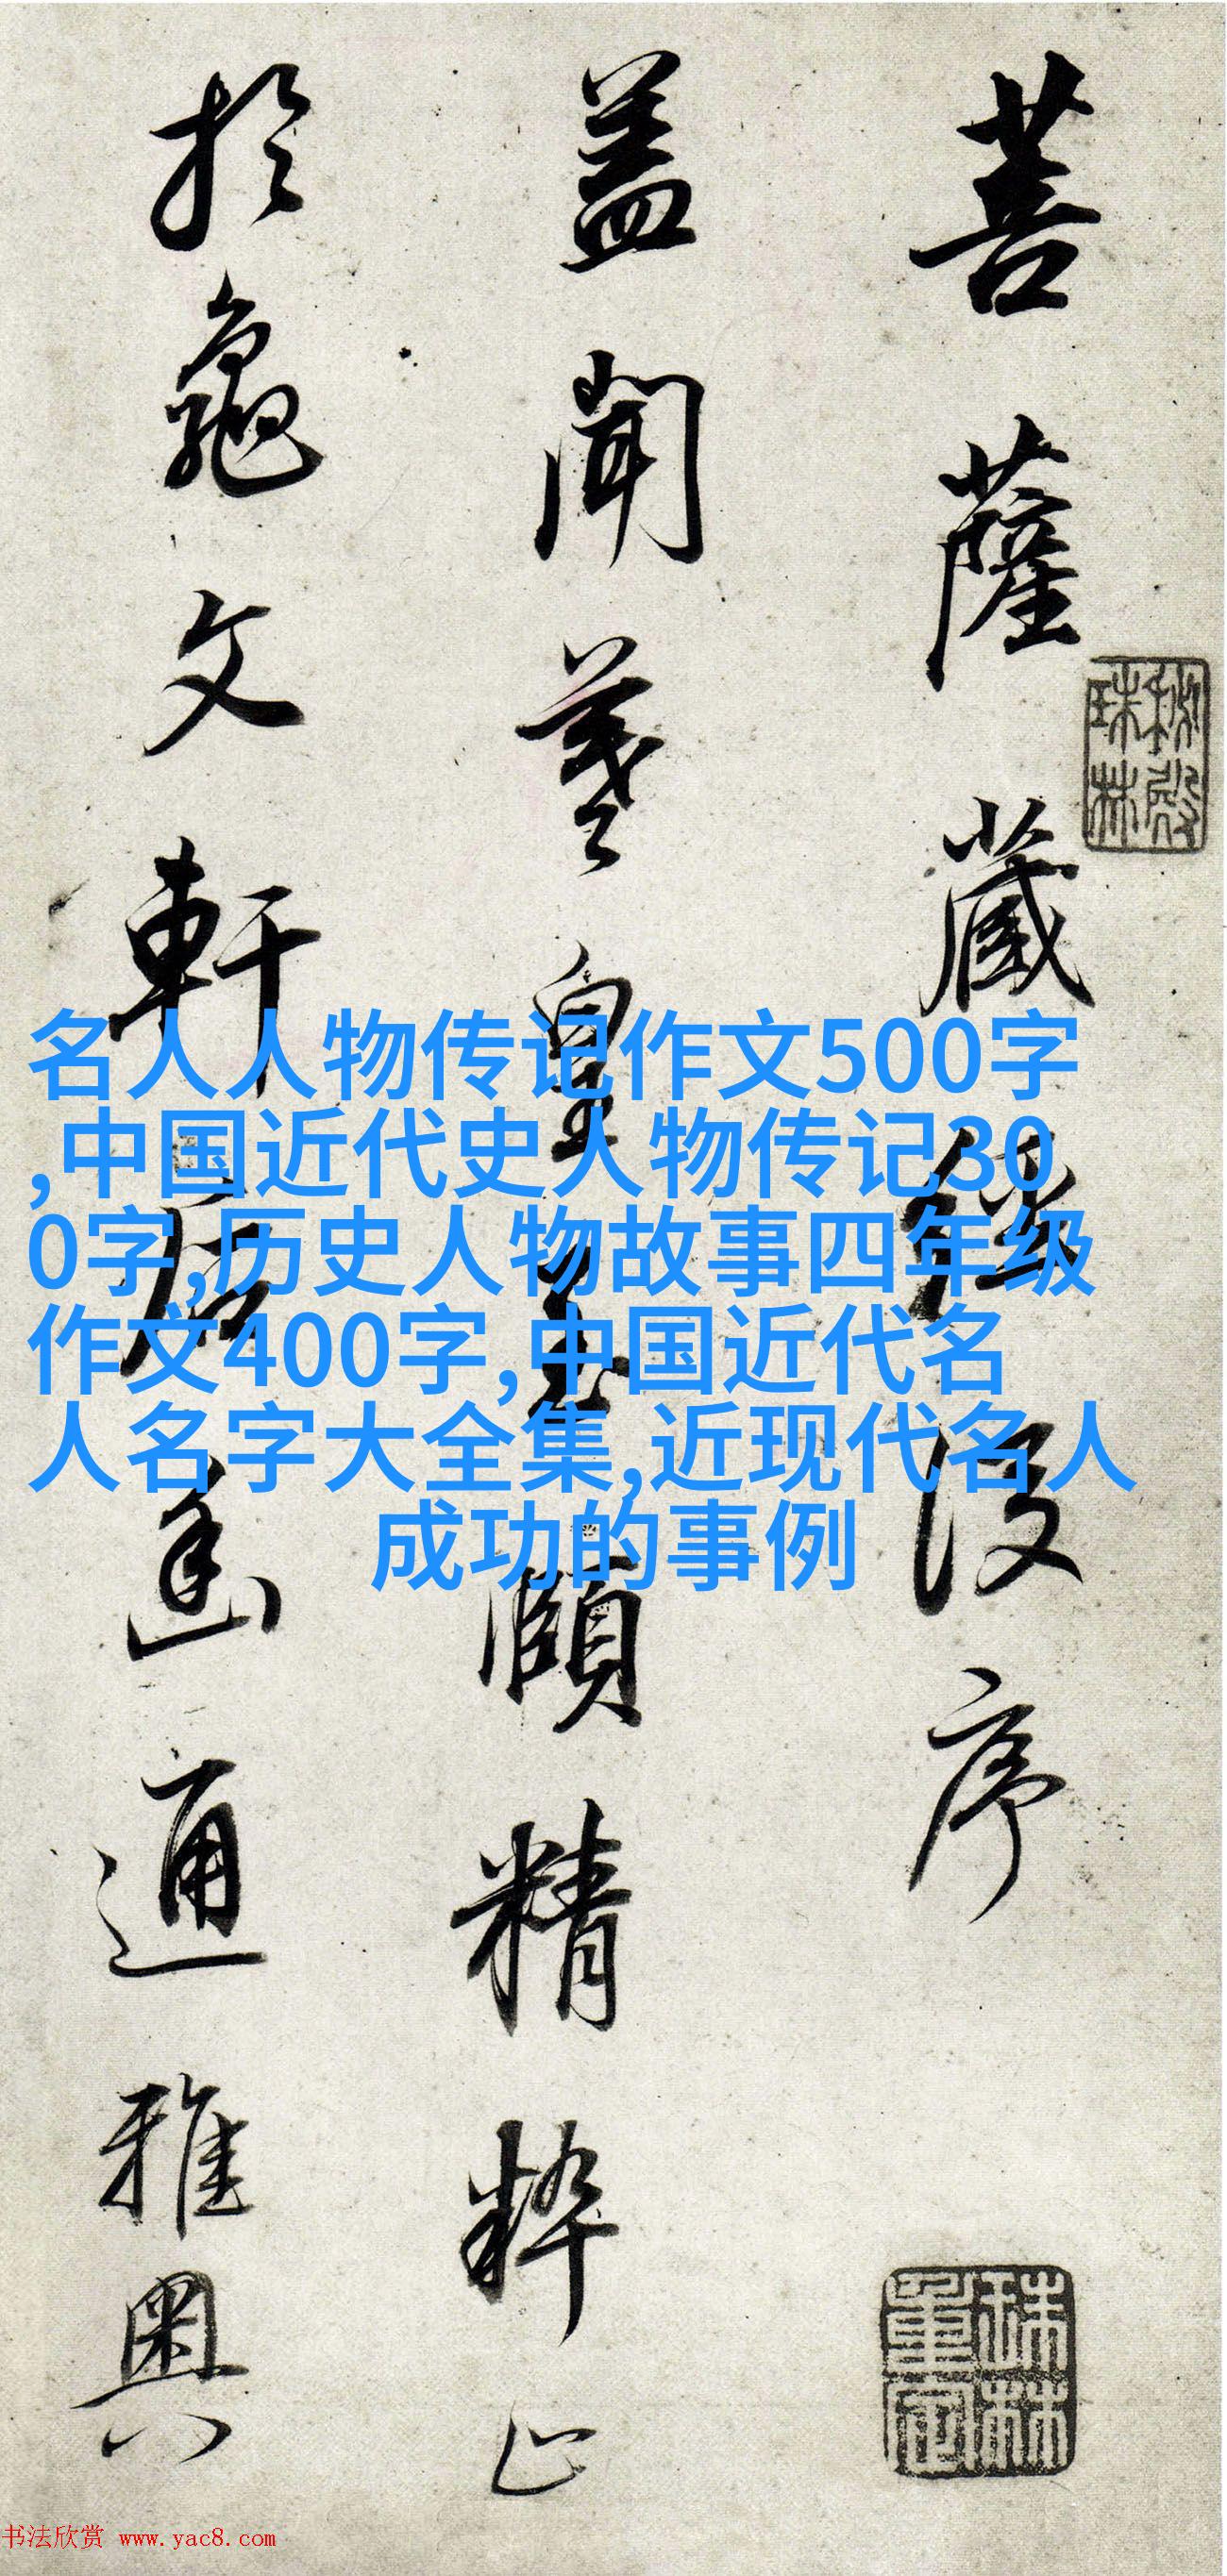 菩薩藏經後序
蓋聞羲皇至賾精粹止
於龜文軒后幽通雅奧
秘殿珠林
珠林重定
名人人物传记作文500字
,中国近代史人物传记30
0字,历史人物故事四年级
作文400字,中国近代名
人名字大全集,近现代名人
成功的事例
书法欣赏 www.yac8.com